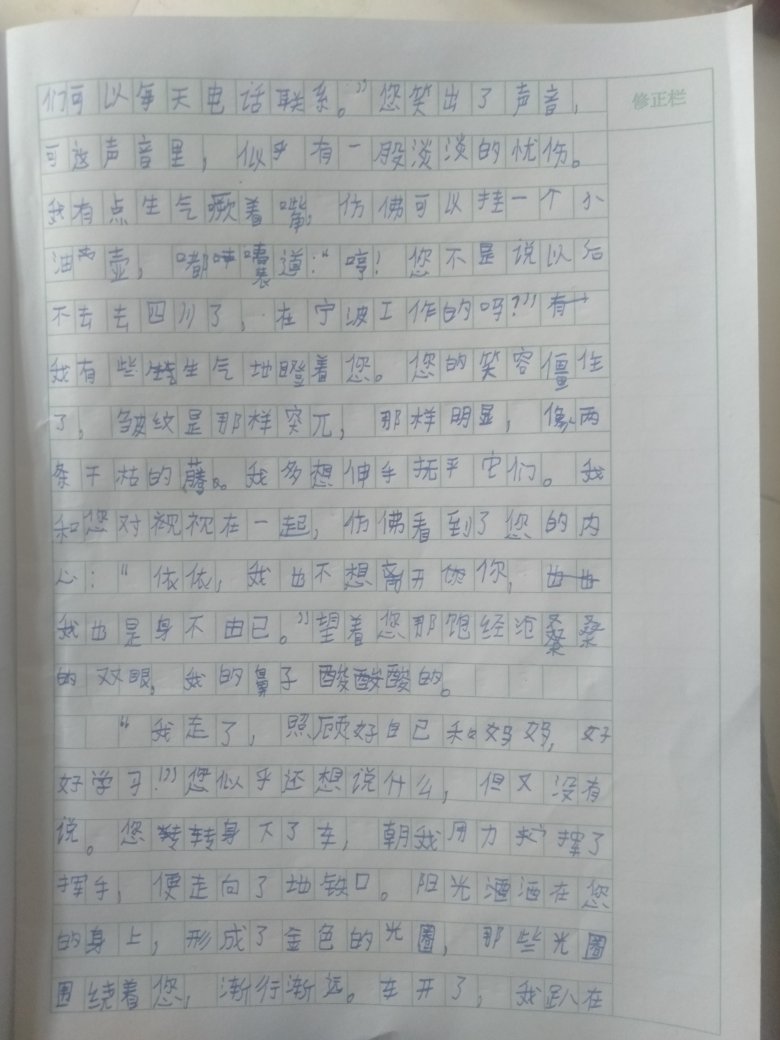 们可以每天电话联系。”您笑出了声音，
修正栏
可这声音里，似乎有一股淡淡的忧伤。
我有点生气噘着嘴，仿佛可以挂一个小
油壶，嘟囔道：“哼！您不是说以后
不去去四川了，在宁波工作的吗？”
我有些生气地瞪着您。您的笑容僵住
了，皱纹是那样突兀，那样明显，像两
条干枯的藤。我多想伸手抚平它们。我
和您对视视在一起，仿佛看到了您的内
心：“依依，我也不想离开你，
我也是身不由已。”望着您那饱经沧桑
的双眼，我的鼻子酸酸酸的。
“我走了，照顾好自已和妈妈，好
好学习！”您似乎还想说什么，但又没有
说。您转身下了车，朝我用力挥了
挥手，便走向了地铁口。阳光洒洒在您
的身上，形成了金色的光圈，那些光圈
围绕着您，渐行渐远。车开了，我趴在